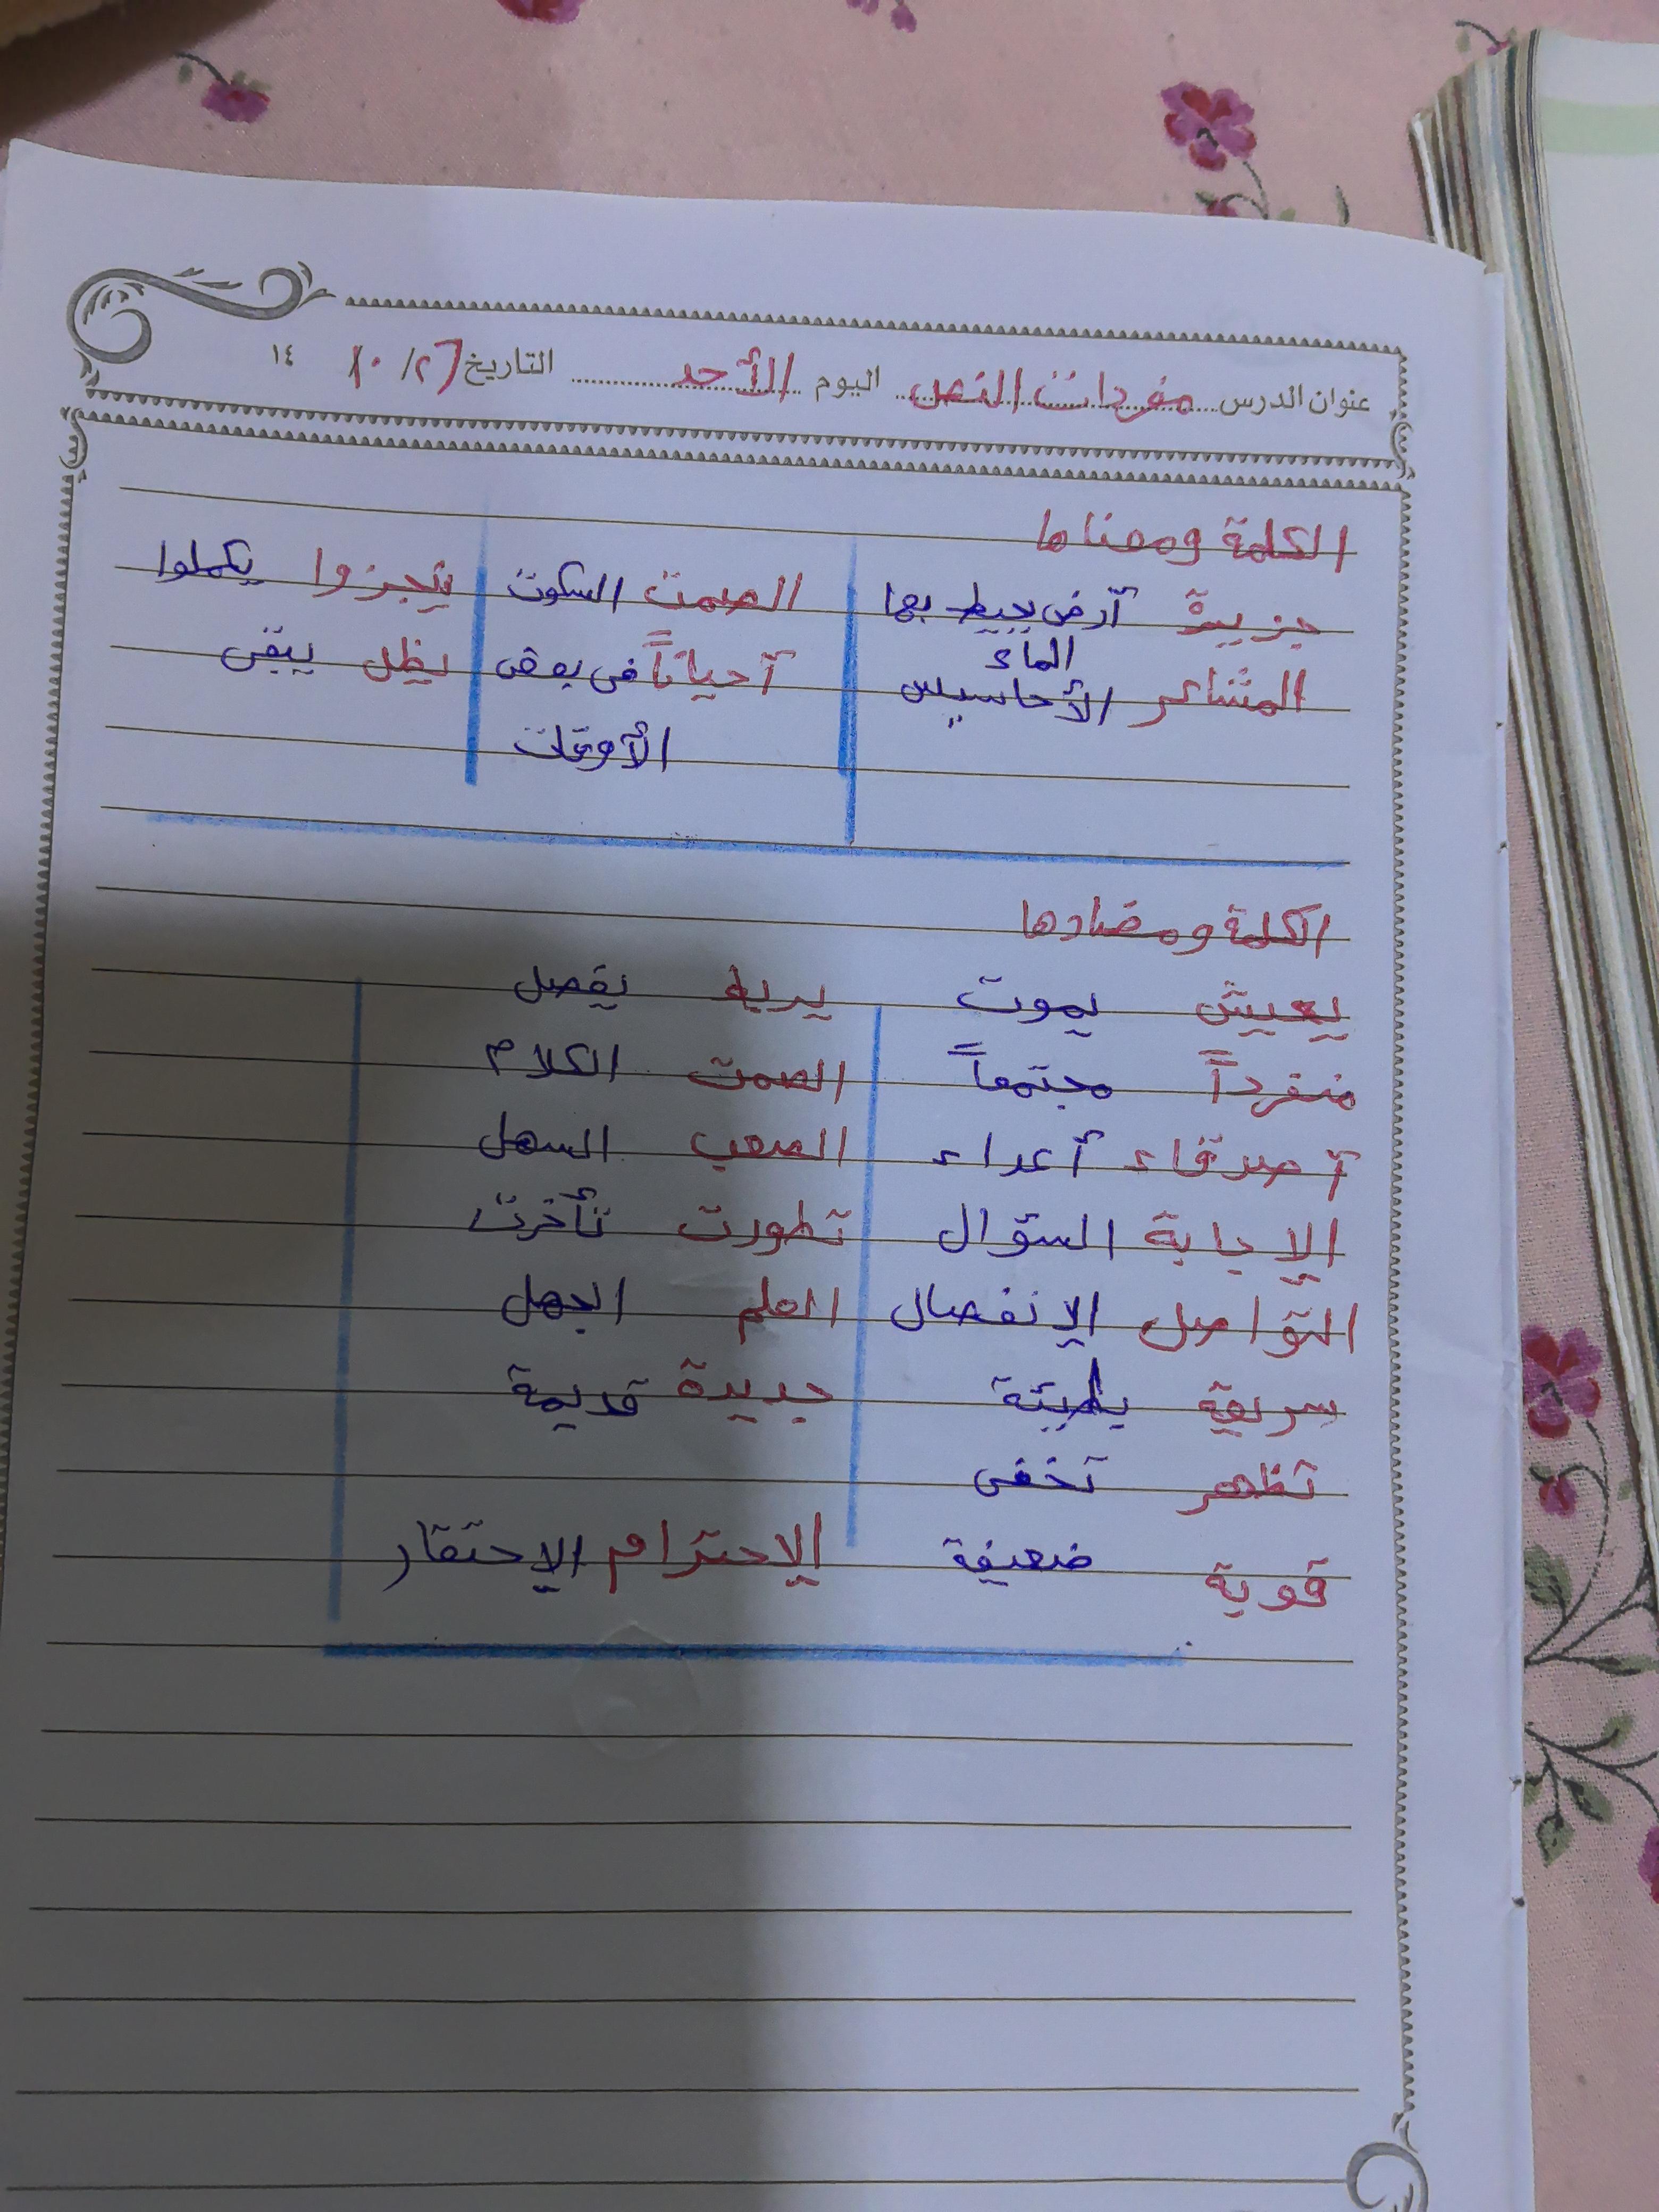 عنوان الدرس مفردات النص اليوم الأحد التاريخ ٢٦/ ١٠ ١٤
الكلمة ومعناها
جزيرة أرض يحيط بها الصمت السكوت ينجزوا يكملوا
الماء
المشاعر الأحاسيس أحياناً فى بعض يظل يبقى
الأوقات
الكلمة ومضادها
يعيش يموت يربط يفصل
منفرداً مجتمعاً الصمت الكلام
أصدقاء أعداء الصعب السهل
الإجابة السؤال تطورت تأخرت
التواصل الإنفصال العلم الجهل
سريعة بطيئة جديدة قديمة
تظهر تخفى
قوية ضعيفة الإحترام الإحتقار